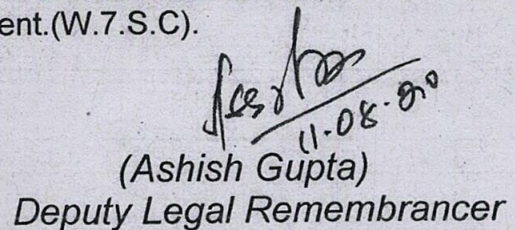 ent.(W.7.S.C).
11-08-20
(Ashish Gupta)
Deputy Legal Remembrancer